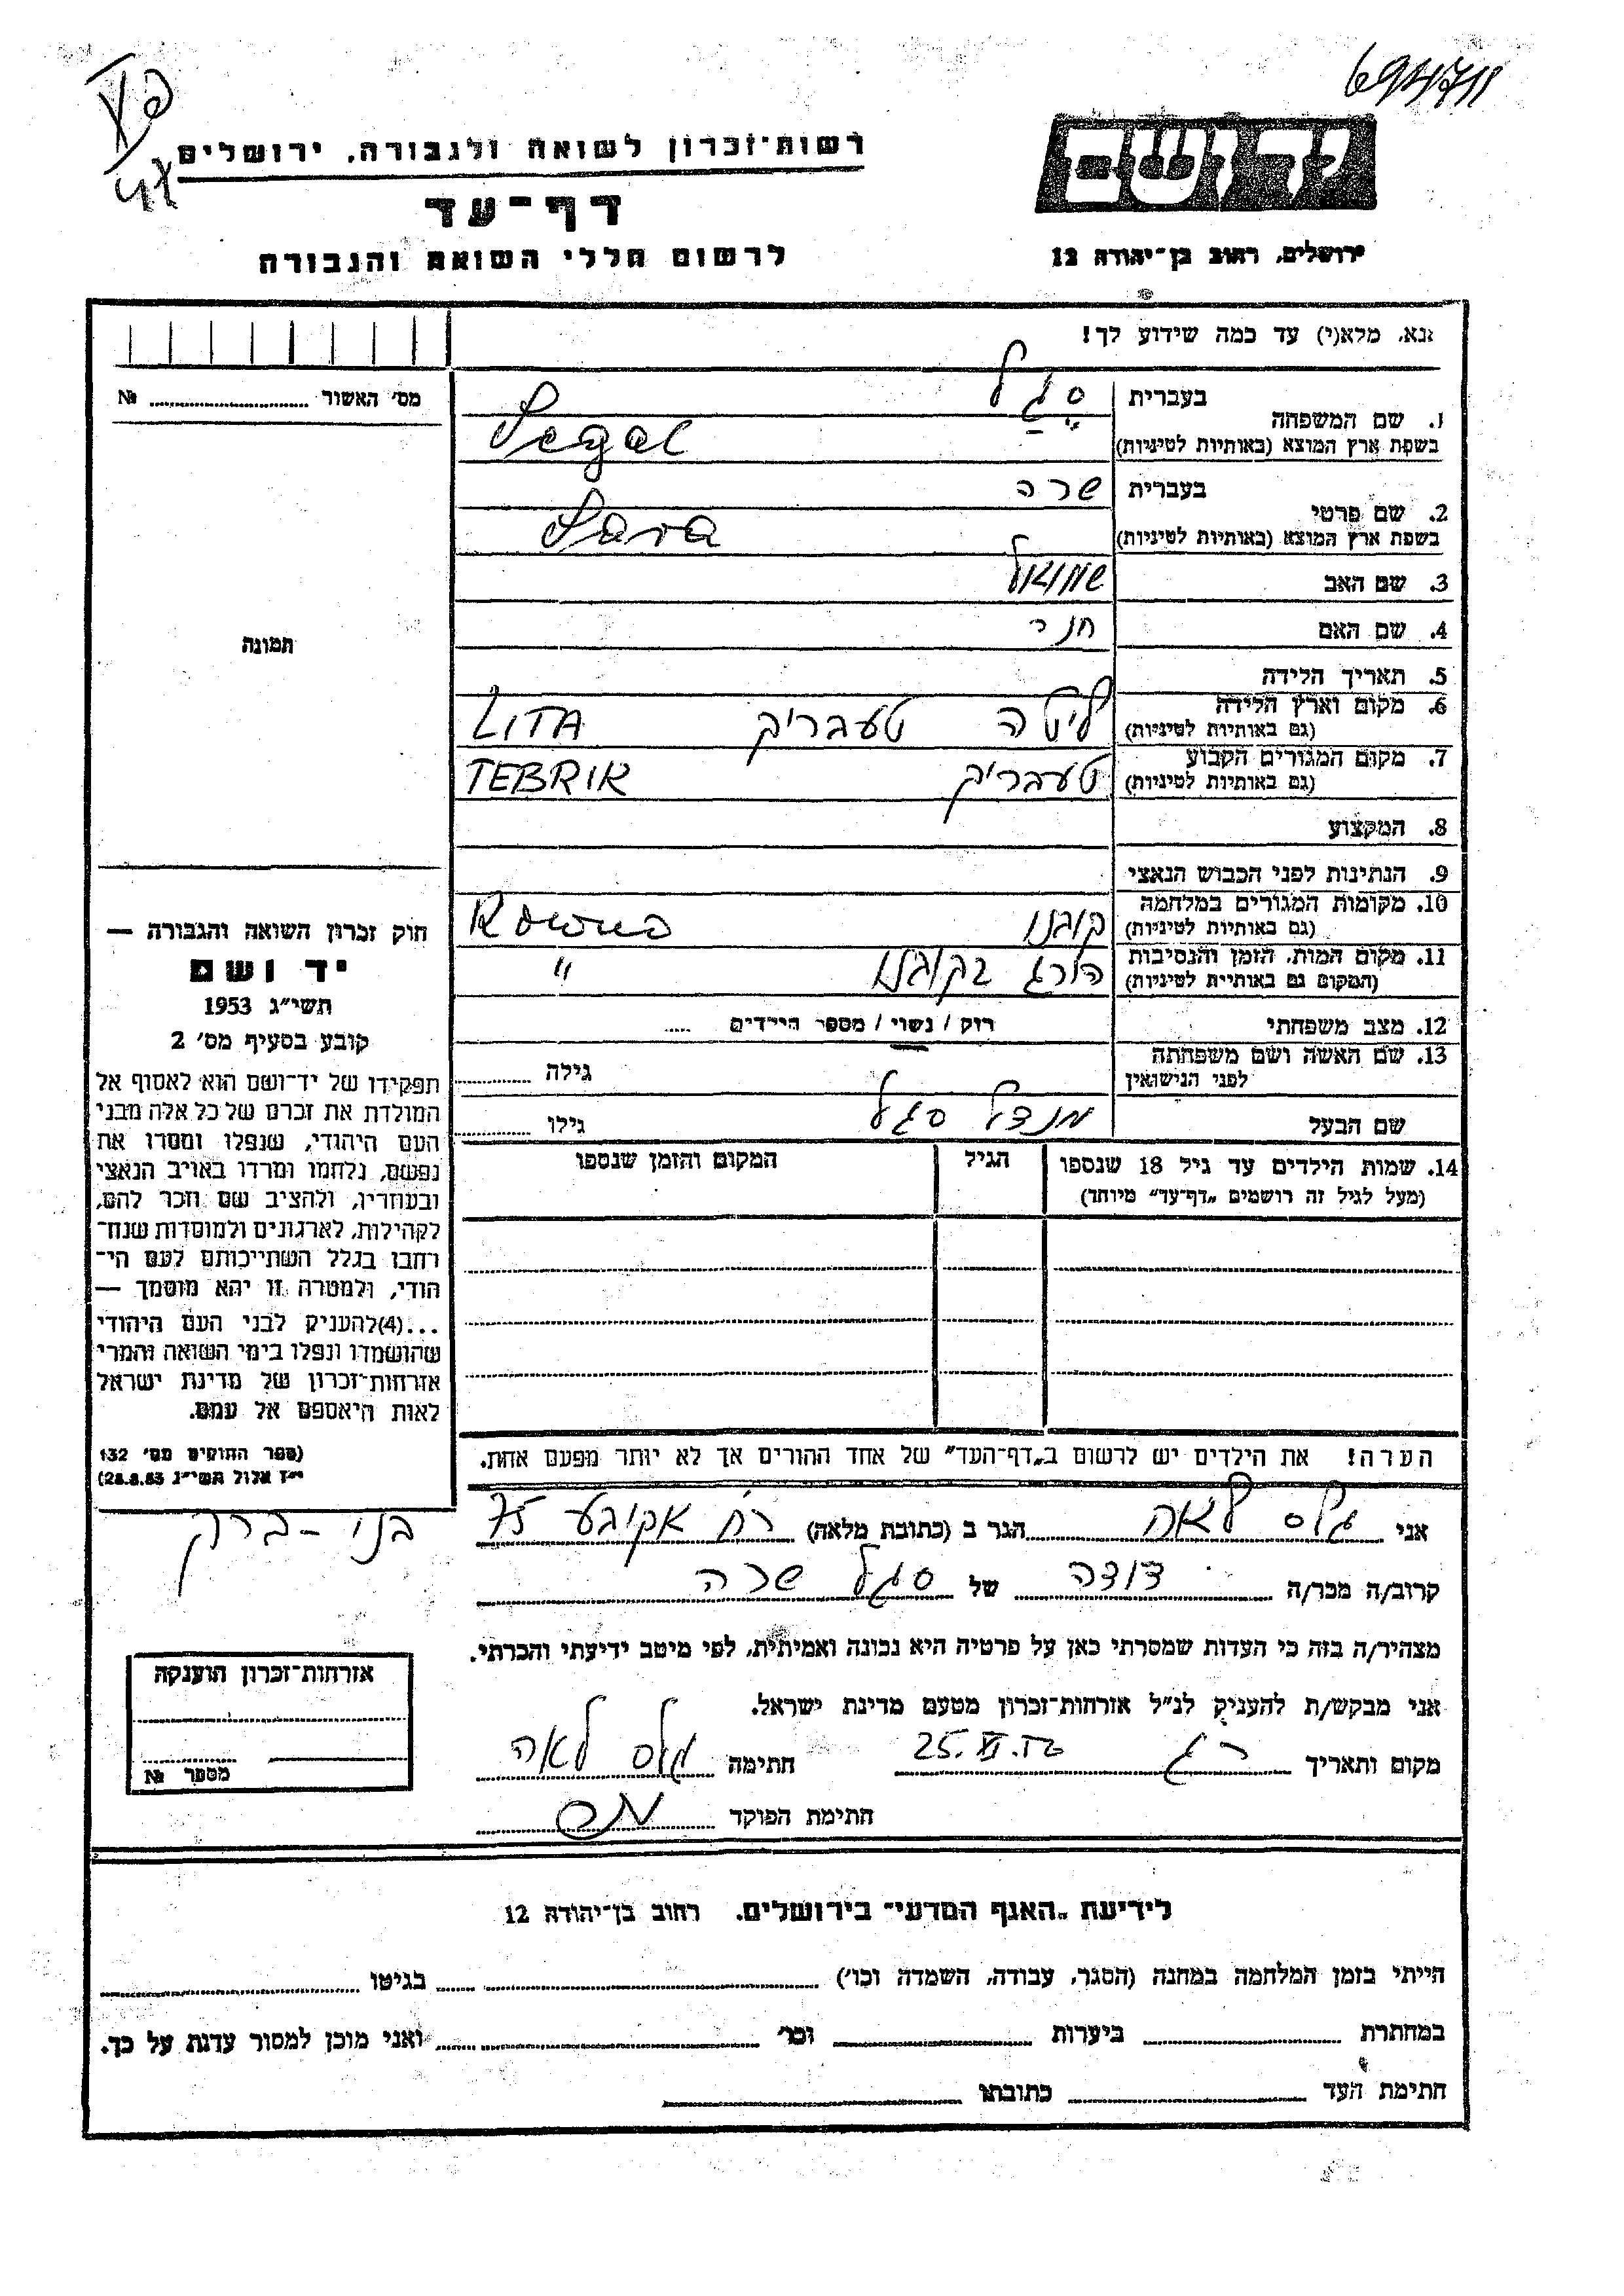 694711
רשות־זכרון לשואה ולגבורה, ירושלים
דף־עד
לרשום חללי השואה והגבורה
ידושם
ירושלים, רחוב בן־יהודה 12
נא, מלא(י) עד כמה שידוע לך!
מס' האשור №
תמונה
1. שם המשפחה בעברית סגל
בשפת ארץ המוצא (באותיות לטיניות) Segal
2. שם פרטי בעברית שרה
בשפת ארץ המוצא (באותיות לטיניות) Sara
3. שם האב שמואל
4. שם האם
5. תאריך הלידה
6. מקום וארץ הלידה (גם באותיות לטיניות) ליטה טעבריק LITA
7. מקום המגורים הקבוע (גם באותיות לטיניות) טעבריק TEBRIK
8. המקצוע
9. הנתינות לפני הכבוש הנאצי
10. מקומות המגורים במלחמה (גם באותיות לטיניות) קובנו
11. מקום המות, הזמן והנסיבות (המקום גם באותיית לטיניות) הורג בקובנו "
12. מצב משפחתי רוק / נשוי / מספר הילדים
13. שם האשה ושם משפחתה לפני הנישואין גילה
שם הבעל מנדל סגל גילו
14. שמות הילדים עד גיל 18 שנספו הגיל המקום והזמן שנספו
(מעל לגיל זה רושמים „דף־עד" מיוחד)
חוק זכרון השואה והגבורה —
יד ושם
תשי״ג 1953
קובע בסעיף מס' 2
תפקידו של יד־ושם הוא לאסוף אל
המולדת את זכרם של כל אלה מבני
העם היהודי, שנפלו ומסרו את
נפשם, נלחמו ומרדו באויב הנאצי
ובעוזריו, ולהציב שם וזכר להם,
לקהילות, לארגונים ולמוסדות שנח־
רחבו בגלל השתייכותם לעם הי־
הודי, ולמטרה זו יהא מוסמך —
...(4)להעניק לבני העם היהודי
שהושמדו ונפלו בימי השואה והמרי
אזרחות־זכרון של מדינת ישראל
לאות היאספם אל עמם.
(ספר החוקים מס' 132
י״ז אלול תשי״ג 28.8.53)
הערה! את הילדים יש לרשום ב„דף־העד" של אחד ההורים אך לא יותר מפעם אחת.
אני גלס לאה הגר ב (כתובת מלאה) רח אקיבא 75 בני-ברק
קרוב/ה מכר/ה דודה של סגל שרה
מצהיר/ה בזה כי העדות שמסרתי כאן על פרטיה היא נכונה ואמיתית, לפי מיטב ידיעתי והכרתי.
אני מבקש/ת להעניק לנ״ל אזרחות־זכרון מטעם מדינת ישראל.
מקום ותאריך רג חתימה גלס לאה
חתימת הפוקד
אזרחות־זכרון הוענקה
מספר №
לידיעת „האגף המדעי" בירושלים. רחוב בן־יהודה 12
הייתי בזמן המלחמה במחנה (הסגר, עבודה, השמדה וכו') בגיטו
במחתרת ביערות וכו' ואני מוכן למסור עדות על כך.
חתימת העד כתובתו